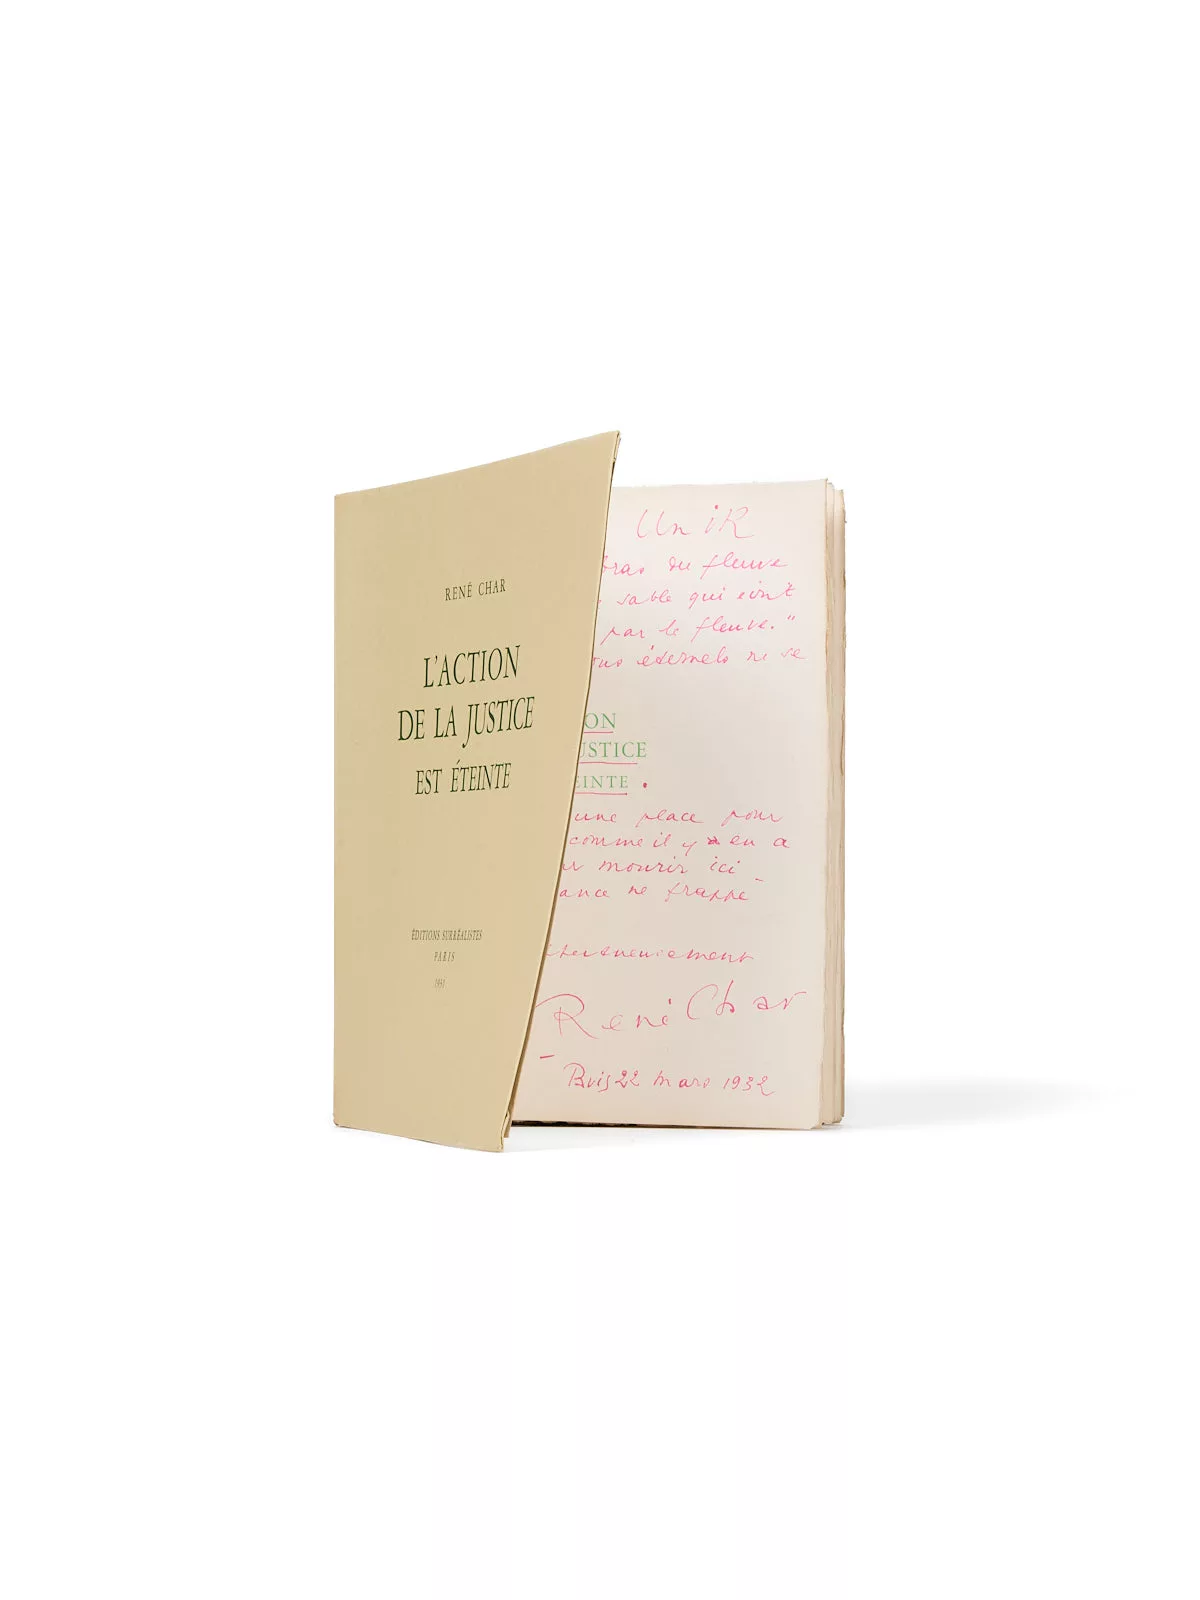 RENÉ CHAR
L'ACTION
DE LA JUSTICE
EST ÉTEINTE
ÉDITIONS SURRÉALISTES
PARIS
1931
Un iR
bras du fleuve
sable qui écrit
par le fleuve."
ous éternels ne se
ION
USTICE
EINTE.
une place pour
comme il y en a
ur mourir ici
ance ne frappe
René Char
22 mars 1932